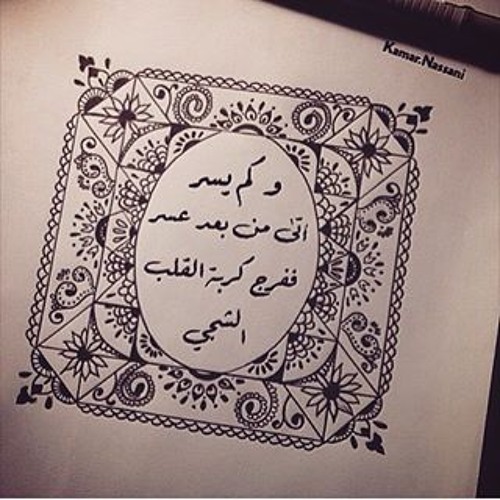 Kamar.Nassani
و كم يسر
اتىٰ من بعد عسر
ففرج كربة القلب
الشجي